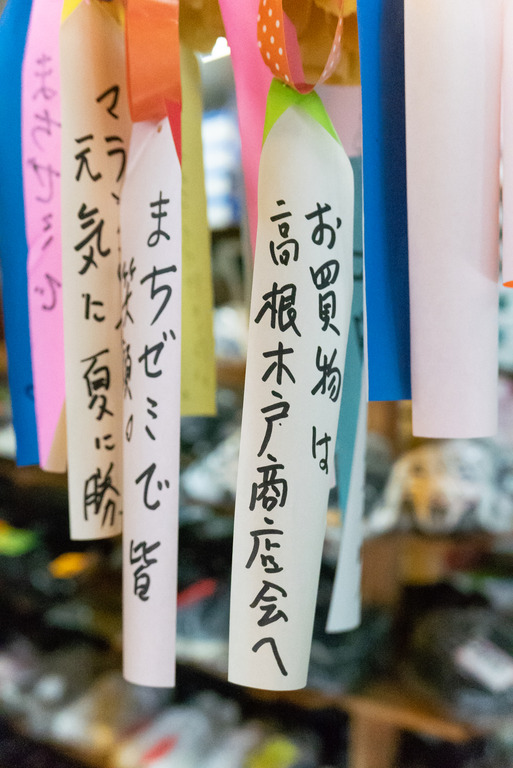 お買物は
高根木戸商店会へ
まちゼミで皆
笑顔。
マラソ
元気に夏に勝
まちゼミ